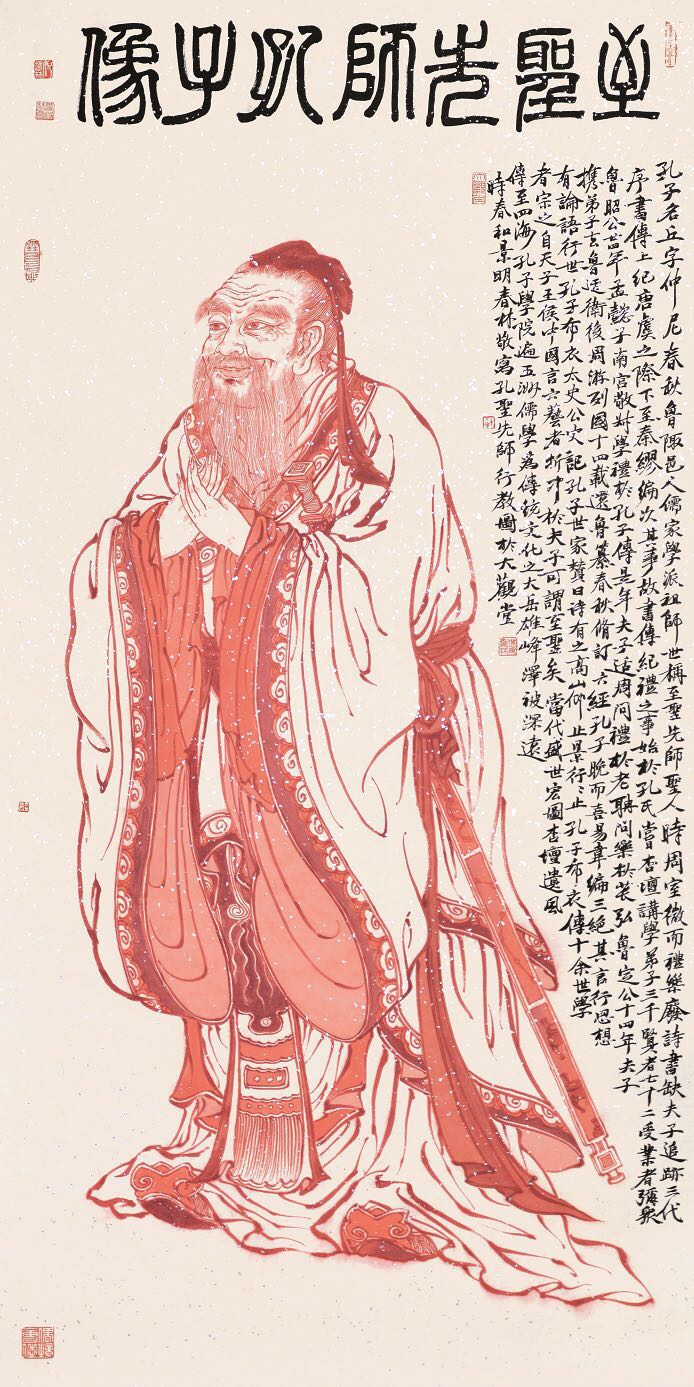 至聖先師孔子像
孔子名丘字仲尼春秋魯陬邑人儒家學派祖師世稱至聖先師聖人時周室微而禮樂廢詩書缺夫子追跡三代
序書傳上紀唐虞之際下至秦繆編次其事故書傳紀禮之事始於孔氏嘗杏壇講學弟子三千賢者七十二受業者彌衆
魯昭公廿四年孟懿子南宮敬叔學禮於孔子傳是年夫子适周問禮於老聃問樂於萇弘魯定公十四年夫子
攜弟子去魯适衛後周游列國十四載還魯纂春秋脩訂六經孔子晚而喜易韋編三絕其言行思想
有論語行世孔子布衣太史公史記孔子世家贊曰詩有之高山仰止景行行止孔子布衣傳十余世學
者宗之自天子王侯中國言六藝者折中於夫子可謂至聖矣當代盛世宏圖杏壇遺風
傳至四海孔子學院遍五洲儒學爲傳統文化之大岳雄峰澤被深遠
時春和景明春林敬寫孔聖先師行教圖於大觀堂